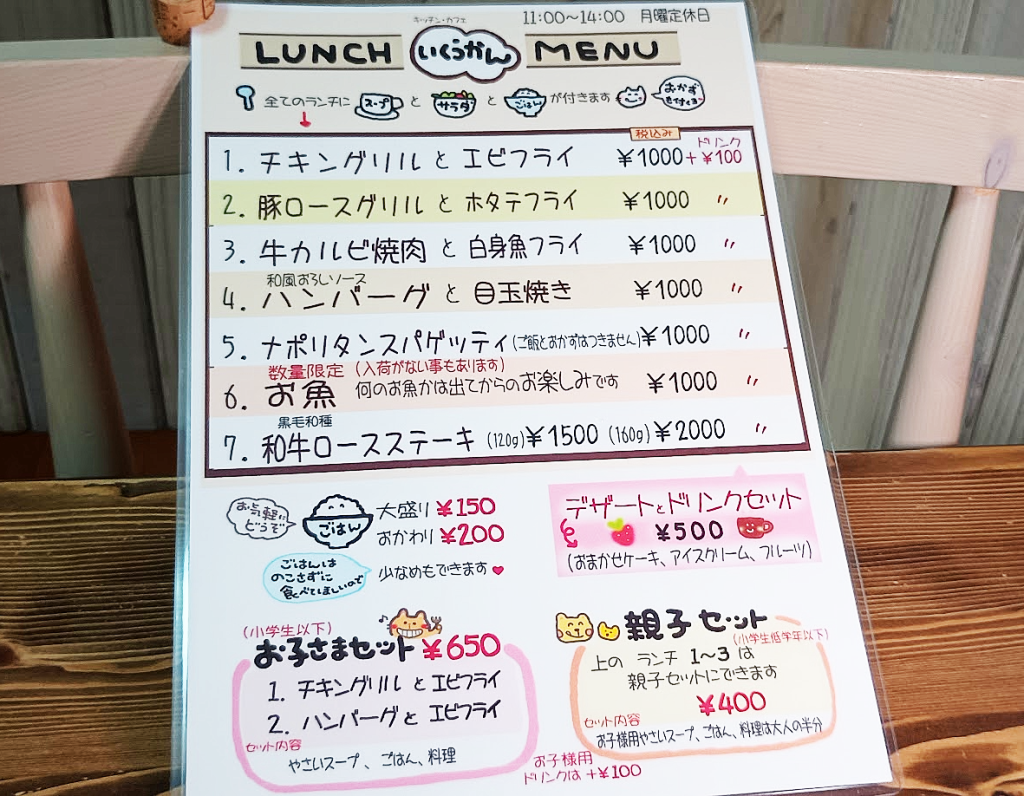 11:00〜14:00 月曜定休日
キッチン・カフェ
LUNCH いくらかん MENU
全てのランチに スープ と サラダ と ごはん が付きます
おかず
税込み
ドリンク
1. チキングリル と エビフライ ¥1000+¥100
2. 豚ロースグリル と ホタテフライ ¥1000 〃
3. 牛カルビ焼肉 と 白身魚フライ ¥1000 〃
和風おろしソース
4. ハンバーグ と 目玉焼き ¥1000 〃
5. ナポリタンスパゲッティ(ご飯とおかずはつきません) ¥1000 〃
数量限定 (入荷がない事もあります)
6. お魚 何のお魚かは出てからのお楽しみです ¥1000 〃
黒毛和種
7. 和牛ロースステーキ (120g)¥1500 (160g)¥2000 〃
お気軽に
どうぞ
ごはん
大盛り ¥150
おかわり ¥200
ごはんは
のこさずに
食べてほしいので
少なめもできます
デザートとドリンクセット
¥500
(おまかせケーキ、アイスクリーム、フルーツ)
(小学生以下)
お子さまセット ¥650
1. チキングリル と エビフライ
2. ハンバーグ と エビフライ
セット内容
やさいスープ、ごはん、料理
親子セット
(小学生低学年以下)
上の ランチ 1〜3 は
親子セットにできます
¥400
セット内容
お子様用やさいスープ、ごはん、料理は大人の半分
お子様用
ドリンクは +¥100